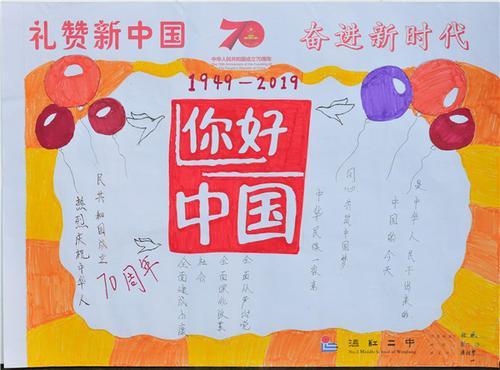 礼赞新中国
70
奋进新时代
中华人民共和国成立70周年
1949-2019
你好
中国
是中华人民干出来的
中国的今天
同心共筑中国梦
中华民族一家亲
全面从严治党
全面深化改革
社会
全面建成小康
民共和国成立
70周年
热烈庆祝中华人
温虹二中